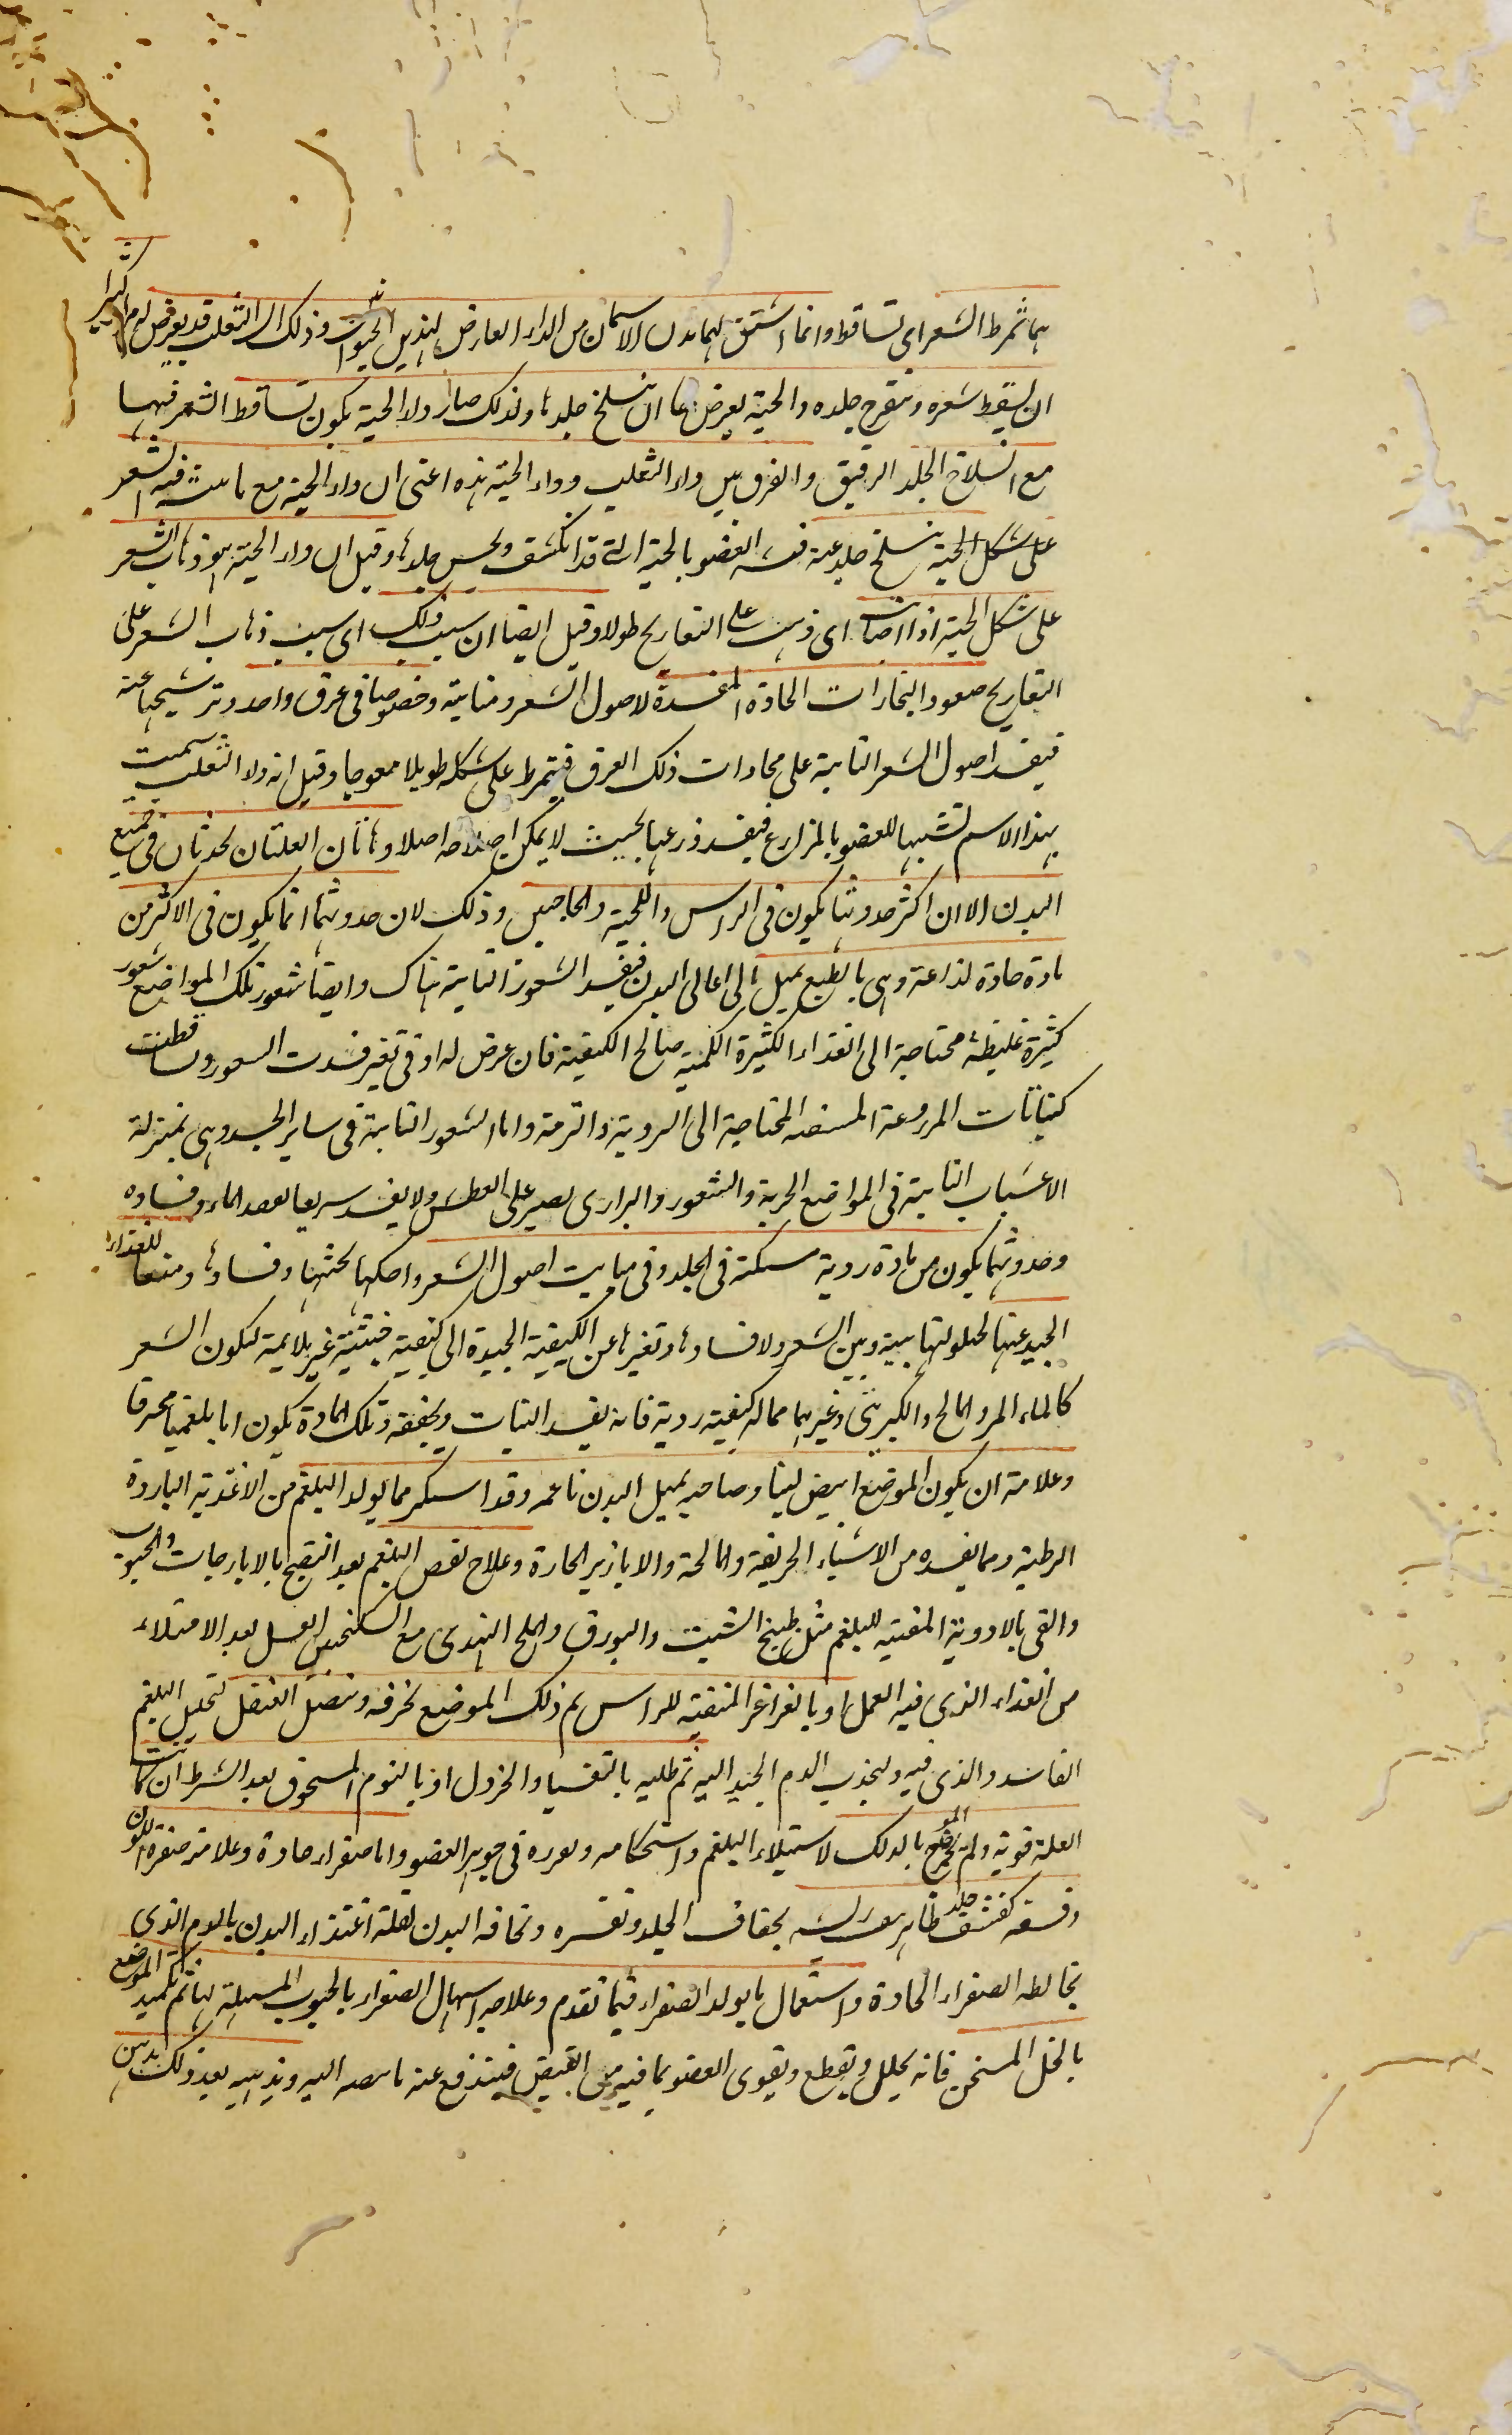 هما تمرط الشعر اى تساقط وانما اشتق لهما هذان الاسمان من الداء العارض لهذين الحيوانين وذلك ان الثعلب قد يعرض له كثيرا
ان يسقط شعره ويتقرح جلده والحية يعرض لها ان ينسلخ جلدها ولذلك صار داء الحية يكون تساقط الشعر فيها
مع انسلاخ الجلد الرقيق والفرق بين داء الثعلب وداء الحية هذه اعنى ان داء الحية مع فيه الشعر
على شكل الحية ينسلخ جلد عنه العضو بالحية التى قد انكشف جلدها وقيل ان داء الحية هو ذهاب الشعر
على شكل الحية اذا اى ذهبت على التعاريج طولا وقيل ايضا ان سبب ذلك اى سبب ذهاب الشعر على
التعاريج صعود البخارات الحادة المفسدة لاصول الشعر ومنابته وخصوصا فى عرق واحد وترشيحها عنه
فيفسد اصول الشعر النابتة على محاذات ذلك العرق فيتمرط على شكله طويلا معوجا وقيل انه داء الثعلب سميت
بهذا الاسم تشبيها للعضو بالمزارع فيفسد زرعها بحيث لا يمكن اصلاحه اصلا وهاتان العلتان تحدثان فى جميع
البدن الا ان اكثر حدوثها يكون فى الراس واللحية والحاجبين وذلك لان حدوثهما انما يكون فى الاكثر من
مادة حادة لذاعة وهى بالطبع يميل الى اعالى البدن فيفسد الشعور النابتة هناك وايضا شعور تلك المواضع شعور
كثيرة غليظة محتاجة الى الغذاء الكثيرة الكمية صالح الكيفية فان عرض له ادنى تغير فسدت الشعور وتساقطت
كنباتات المزروعة المحتاجة الى التربية والترمة واما الشعور النابتة فى ساير الجسد وهى بمنزلة
الاعشاب النابتة فى المواضع الخربة والشعور والبرارى يصبر على العطش ولا يفسد سريعا الماء وفساده
وحدوثهما يكون من مادة ردية فى الجلد وفى منابت اصول الشعر واهلكها وفسادها ومنعها للغذاء
الجيد عنها لحيلولتها بينه وبين الشعر ولافسادها وتغيرها عن الكيفية الجيدة الى كيفية غير ملايمة لتكون الشعر
كالماء المر والمالح والكبريتى وغيرهما مما له كيفية ردية فانه يفسد النبات ويجففه وتلك المادة يكون اما بلغميا محرقا
وعلامته ان يكون الموضع ابيض لينا وصاحبه ميل البدن ناعمه وقد استكثر مما يولد البلغم من الاغذية الباردة
الرطبة ومما يفسده من الاشياء الحريفة والمالحة والابازير الحارة وعلاج نفض البلغم بعد النضج بالايارجات والحبوب
والقى بالادوية المقيئه للبلغم مثل طبيخ الشبت والبورق والملح الهندى مع السكنجبين العسل بعد الامتلاء
من الغذاء الذى فيه العمل او بالغراغر المنقية للراس ثم ذلك الموضع بخرقه وببصل العنصل لتحليل البلغم
الفاسد والذى فيه وليجذب الدم الجيد اليه ثم طليه بالتفسيا والخردل او بالثوم المسحوق بعد الشرط ان كانت
العلة قوية ولم يحمر الموضع بالدلك لاستيلاء البلغم واستحكامه فى جوهر العضو واما صفراء حادة وعلامته صفرة اللون
جلد ظاهر بجفاف الجلد ونحافه البدن لقلة اغتذاء البدن بالدم الذى
يخالطه الصفراء الحادة واستعمال ما يولد الصفراء فيما تقدم وعلاجه اسهال الصفراء بالحبوب المسهلة لها ثم تكميد الموضع
بالخل المسخن فانه يحلل ويقطع ويقوى العضو بما فيه من القبض فيندفع عنه ما اليه وتدهينه بعد ذلك بدهن